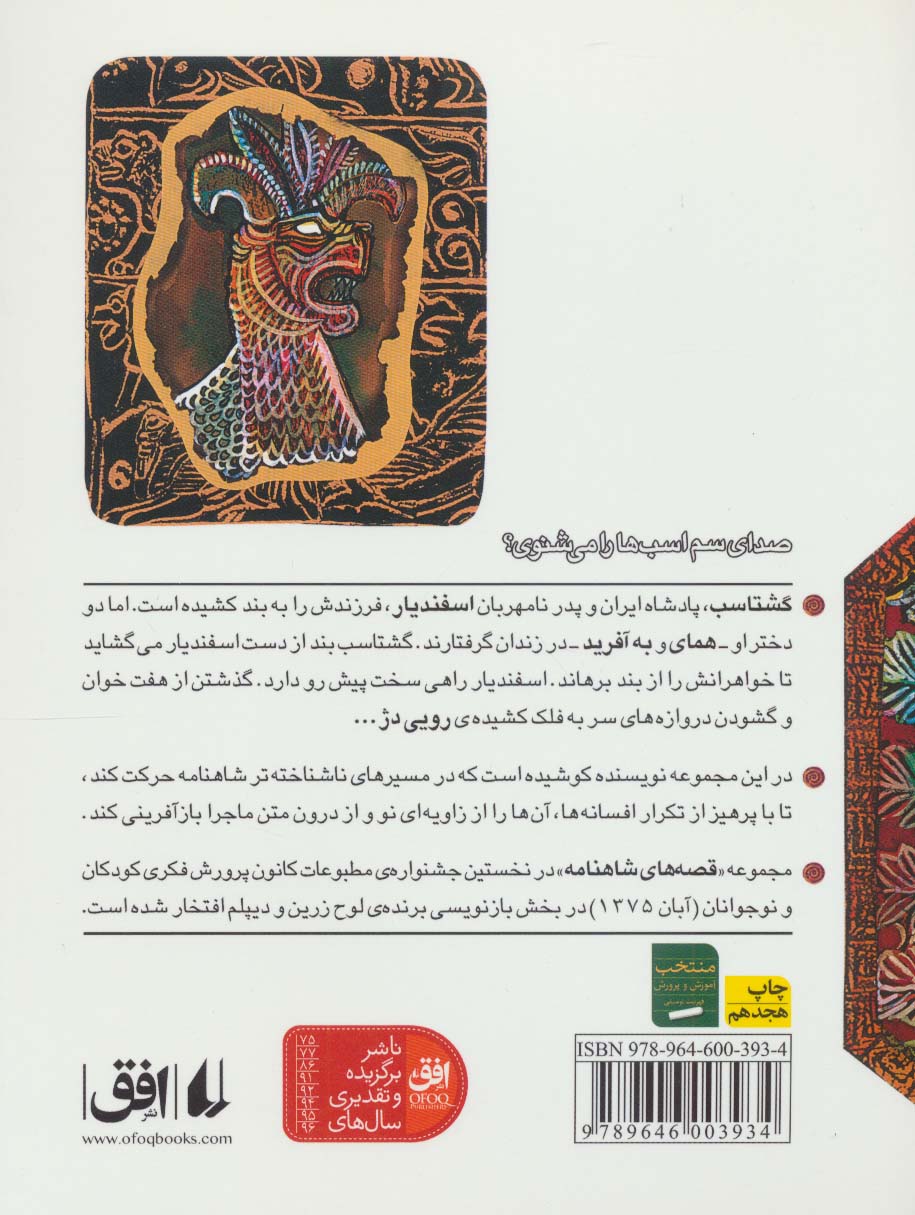 صدای سم اسب‌ها را می‌شنوی؟
گشتاسب، پادشاه ایران و پدر نامهربان اسفندیار، فرزندش را به بند کشیده است. اما دو
دختر او ـ همای و به آفرید ـ در زندان گرفتارند. گشتاسب بند از دست اسفندیار می‌گشاید
تا خواهرانش را از بند برهاند. اسفندیار راهی سخت پیش رو دارد. گذشتن از هفت خوان
و گشودن دروازه‌های سر به فلک کشیده‌ی رویی دژ ...
در این مجموعه نویسنده کوشیده است که در مسیرهای ناشناخته‌تر شاهنامه حرکت کند،
تا با پرهیز از تکرار افسانه‌ها، آن‌ها را از زاویه‌ای نو و از درون متن ماجرا بازآفرینی کند.
مجموعه «قصه‌های شاهنامه» در نخستین جشنواره‌ی مطبوعات کانون پرورش فکری کودکان
و نوجوانان (آبان ۱۳۷۵) در بخش بازنویسی برنده‌ی لوح زرین و دیپلم افتخار شده است.
منتخب
آموزش و پرورش
فهرست توصیفی
چاپ
هجدهم
ISBN 978-964-600-393-4
9 789646 003934
ناشر
برگزیده
و تقدیری
سال‌های
۷۵
۷۷
۸۶
۹۱
۹۲
۹۴
۹۵
۹۶
نشر
افق
OFOQ
PUBLISHERS
افق
نشر
www.ofoqbooks.com